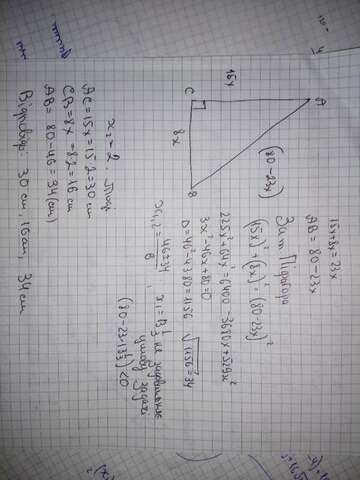 A
15x
C
8x
B
(80-23x)
15x+8x=23x
AB = 80-23x
За т. Піфагора
(15x)²+(8x)² = (80-23x)²
225x²+64x²=6400-3680x+529x²
3x²-46x+80=0
D=46²-4·3·80=1156 √1156=34
x₁,₂ = 46±34 / 6 , x₁=13⅓ не задовольняє
умову задачі
(80-23·13⅓)<0
x₂ = 2. Тоді
AC=15x=15·2=30 см
CB=8x=8·2=16 см
AB = 80-46=34 (см)
Відповідь: 30 см, 16 см, 34 см